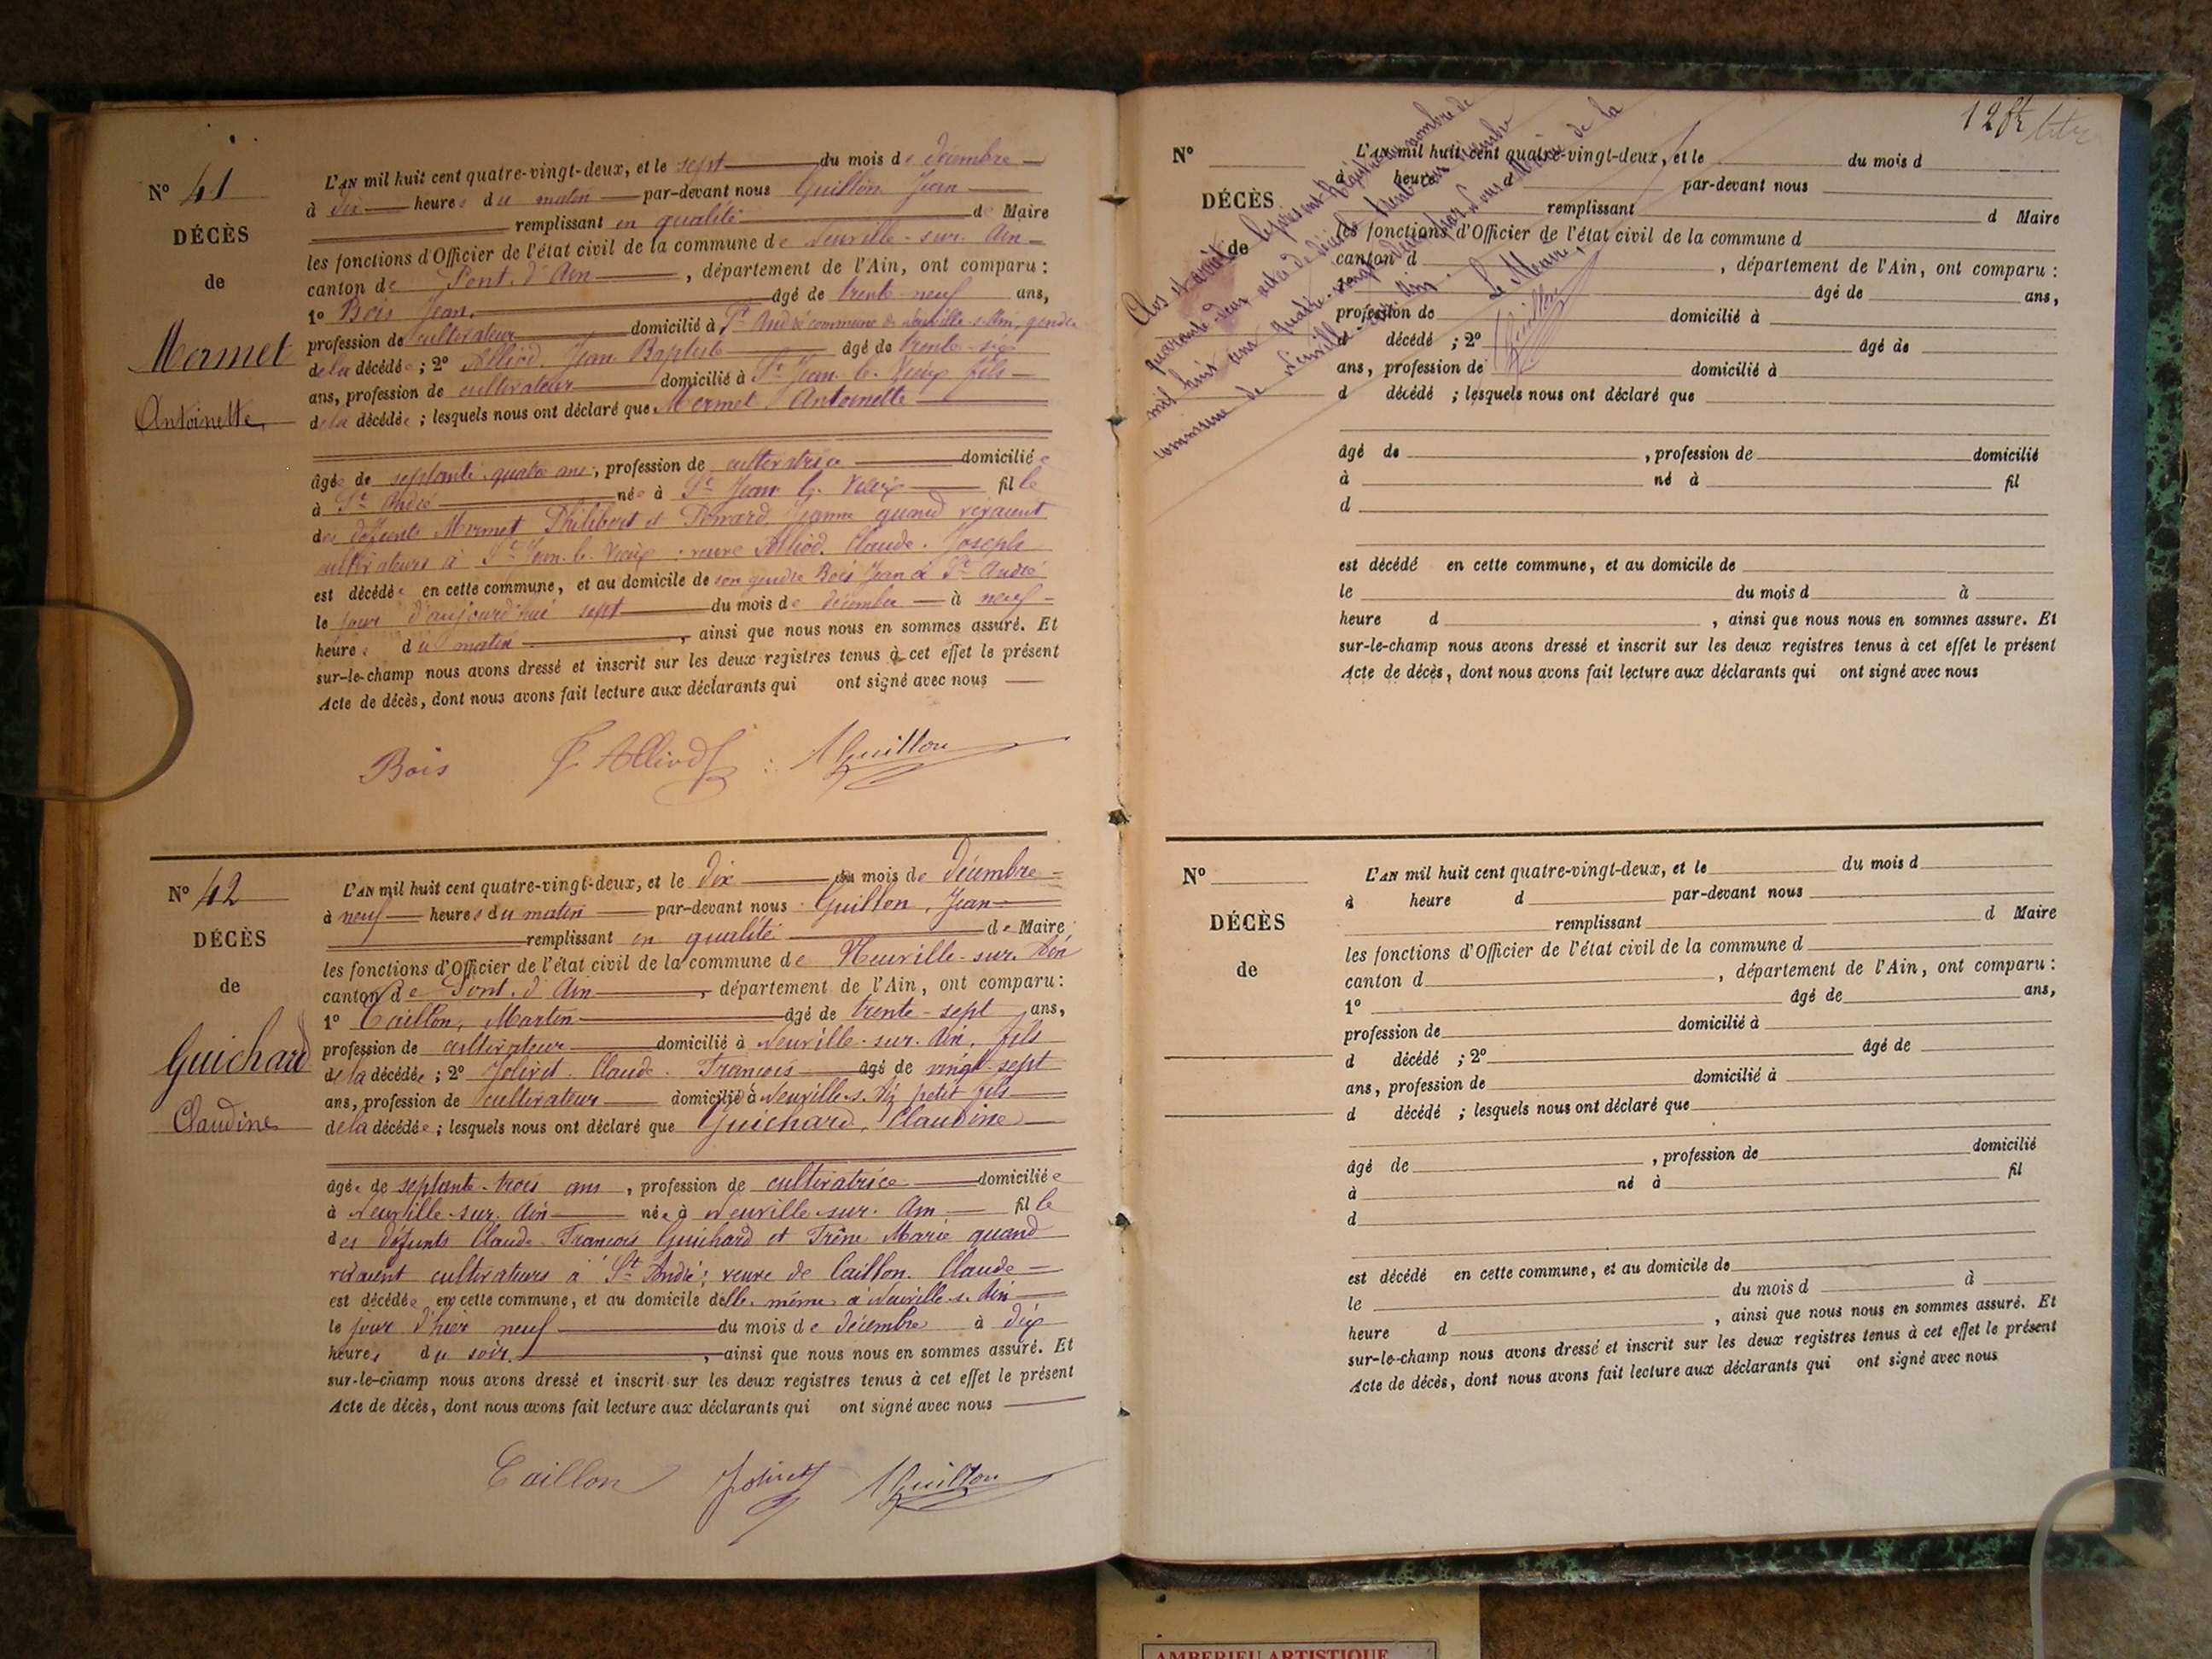 N° 41
DÉCÈS
de
Mermet
Antoinette
L'AN mil huit cent quatre-vingt-deux, et le sept du mois de décembre
à dix heures du matin par-devant nous Guillon Jean
remplissant en qualité de Maire
les fonctions d'Officier de l'état civil de la commune de Neuville-sur-Ain
canton de Pont-d'Ain, département de l'Ain, ont comparu :
1° Bois Jean, âgé de trente-neuf ans,
profession de cultivateur domicilié à St André commune de Neuville s. Ain, gendre
de la décédée ; 2° Alliod Jean Baptiste âgé de trente-six
ans, profession de cultivateur domicilié à St Jean-le-Vieux fils
de la décédée ; lesquels nous ont déclaré que Mermet Antoinette
âgée de septante-quatre ans, profession de cultivatrice domiciliée
à St André née à St Jean-le-Vieux fille
des défunts Mermet Philibert et Jeanne quand vivaient
cultivateurs à St Jean-le-Vieux veuve Alliod Claude-Joseph
est décédée en cette commune, et au domicile de son gendre Bois Jean à St André
le jour d'aujourd'hui sept du mois de décembre à neuf
heures du matin, ainsi que nous nous en sommes assuré. Et
sur-le-champ nous avons dressé et inscrit sur les deux registres tenus à cet effet le présent
Acte de décès, dont nous avons fait lecture aux déclarants qui ont signé avec nous
Bois Alliod Guillon
N° 42
DÉCÈS
de
Guichard
Claudine
L'AN mil huit cent quatre-vingt-deux, et le dix du mois de décembre
à neuf heures du matin par-devant nous Guillon, Jean
remplissant en qualité de Maire
les fonctions d'Officier de l'état civil de la commune de Neuville-sur-Ain
canton de Pont-d'Ain, département de l'Ain, ont comparu :
1° Caillon, Martin âgé de trente-sept ans,
profession de cultivateur domicilié à Neuville-sur-Ain, fils
de la décédée ; 2° Jolivet Claude-François âgé de vingt-sept
ans, profession de cultivateur domicilié à Neuville s. Ain petit fils
de la décédée ; lesquels nous ont déclaré que Guichard, Claudine
âgée de septante-trois ans, profession de cultivatrice domiciliée
à Neuville-sur-Ain née à Neuville-sur-Ain fille
des défunts Claude-François Guichard et Marie quand
vivaient cultivateurs à St André ; veuve de Caillon Claude
est décédée en cette commune, et au domicile d'elle-même à Neuville s. Ain
le jour d'hier neuf du mois de décembre à dix
heures du soir, ainsi que nous nous en sommes assuré. Et
sur-le-champ nous avons dressé et inscrit sur les deux registres tenus à cet effet le présent
Acte de décès, dont nous avons fait lecture aux déclarants qui ont signé avec nous
Caillon Jolivet Guillon
12
Clos et arrêté le présent Registre au nombre de
quarante-deux actes de décès le trente un décembre
mil huit cent quatre-vingt-deux par nous Maire de la
commune de Neuville-sur-Ain.
Le Maire,
Guillon
N°
DÉCÈS
de
L'AN mil huit cent quatre-vingt-deux, et le du mois d
à heure d par-devant nous
remplissant d Maire
les fonctions d'Officier de l'état civil de la commune d
canton d , département de l'Ain, ont comparu :
1° âgé de ans,
profession de domicilié à
d décédé ; 2° âgé de
ans, profession de domicilié à
d décédé ; lesquels nous ont déclaré que
âgé de , profession de domicilié
à né à fil
d
est décédé en cette commune, et au domicile de
le du mois d à
heure d , ainsi que nous nous en sommes assuré. Et
sur-le-champ nous avons dressé et inscrit sur les deux registres tenus à cet effet le présent
Acte de décès, dont nous avons fait lecture aux déclarants qui ont signé avec nous
N°
DÉCÈS
de
L'AN mil huit cent quatre-vingt-deux, et le du mois d
à heure d par-devant nous
remplissant d Maire
les fonctions d'Officier de l'état civil de la commune d
canton d , département de l'Ain, ont comparu :
1° âgé de ans,
profession de domicilié à
d décédé ; 2° âgé de
ans, profession de domicilié à
d décédé ; lesquels nous ont déclaré que
âgé de , profession de domicilié
à né à fil
d
est décédé en cette commune, et au domicile de
le du mois d à
heure d , ainsi que nous nous en sommes assuré. Et
sur-le-champ nous avons dressé et inscrit sur les deux registres tenus à cet effet le présent
Acte de décès, dont nous avons fait lecture aux déclarants qui ont signé avec nous
AMBERIEU ARTISTIQUE